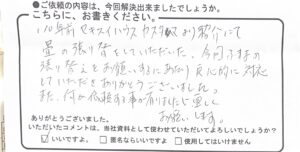 ●ご依頼の内容は、今回解決出来ましたでしょうか。
こちらに、お書きください。
10年前 セキスイハウス カスタマより紹介にて
畳の張り替をしていただいた。今回ふすまの
張り替えをお願いするにあたり 良心的に対応
していただきありがとうございました。
また、何か依頼する事が有りましたら宜しく
お願いします。
ありがとうございました。
いただいたコメントは、当社資料として使わせていただいてよろしいでしょうか？
いいですよ。 □匿名ならいいですよ □使用してはいけません